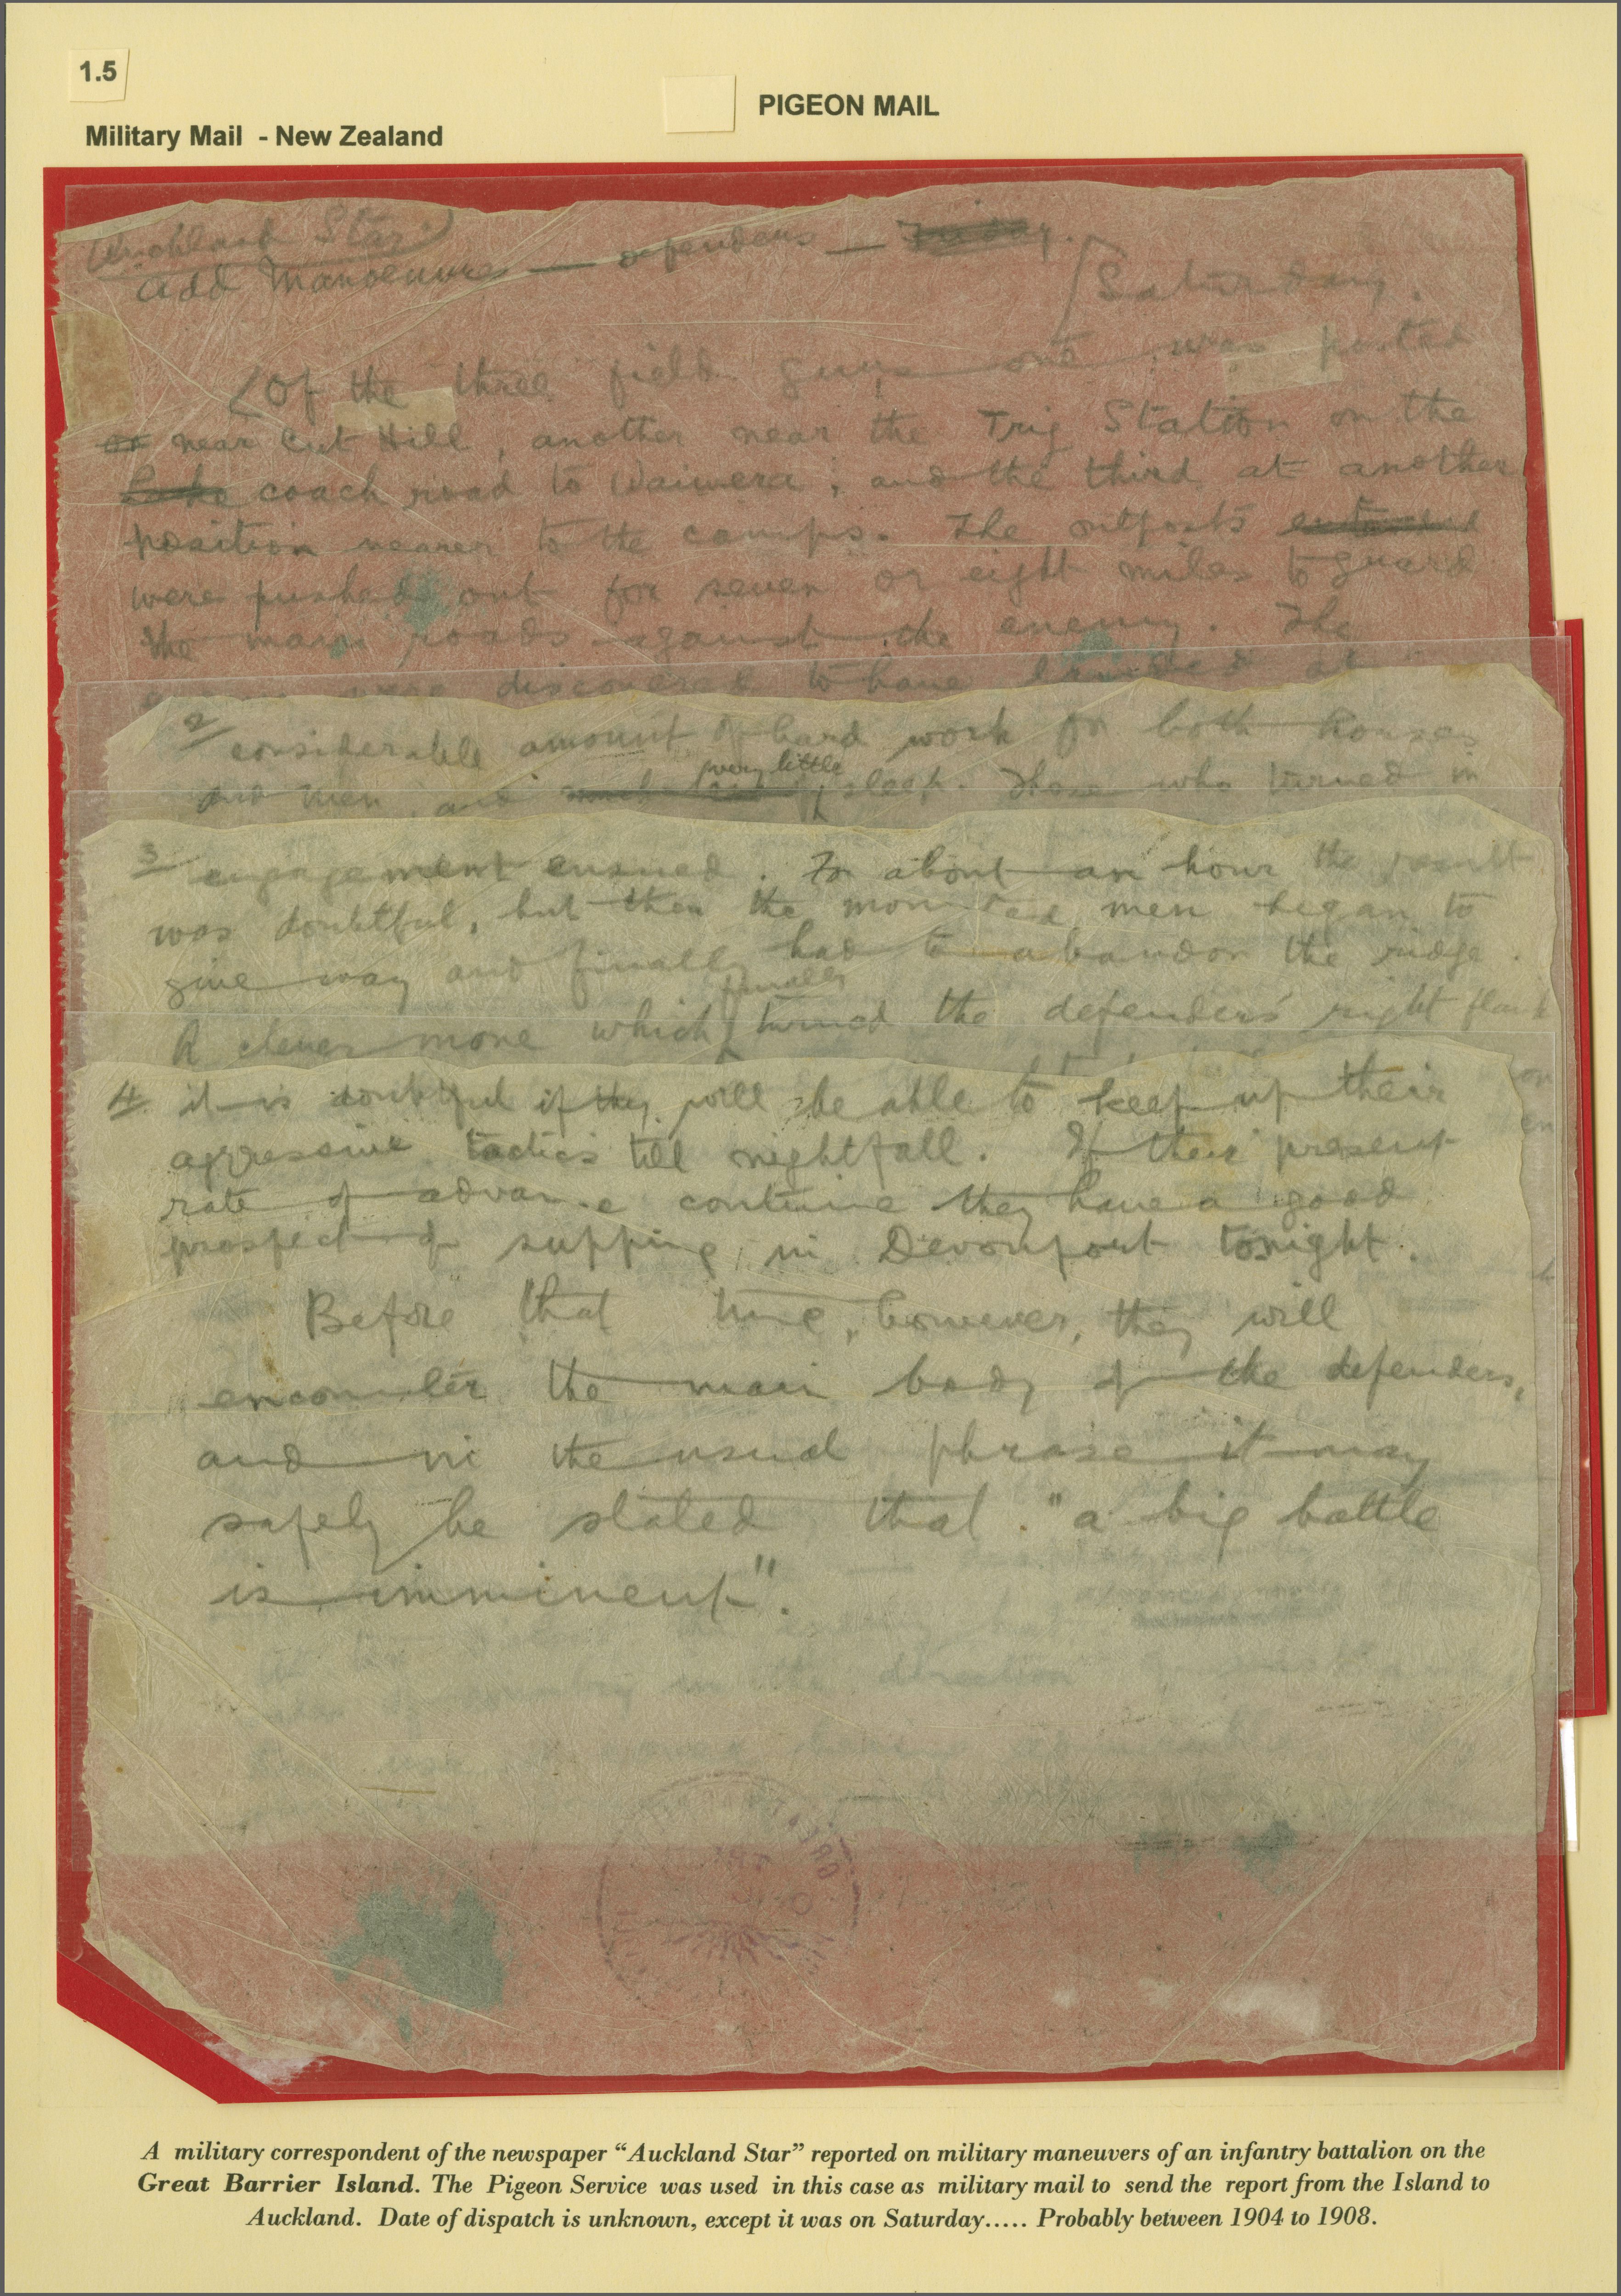 1.5
PIGEON MAIL
Military Mail - New Zealand
Auckland Star
Add Manoeuvres — defenders — Friday.
Saturday.
Of the three field guns one was posted
near Cut Hill, another near the Trig Station on the
coach road to Waiwera; and the third at another
position nearer to the camps. The outposts
were pushed out for seven or eight miles to guard
the main roads against the enemy. The
were discovered to have landed at
2 considerable amount of hard work for both horses
very little
and men, and sleep. Those who turned in
3 engagement ensued. For about an hour the result
was doubtful, but then the mounted men began to
give way and finally had to abandon the ridge.
finally
A clever move which turned the defenders' right flank
4. it is doubtful if they will be able to keep up their
aggressive tactics till nightfall. If their present
rate of advance continue they have a good
prospect of supping in Devonport tonight.
Before that time, however, they will
encounter the main body of the defenders,
and in the usual phrase it may
safely be stated that "a big battle
is imminent".
A military correspondent of the newspaper “Auckland Star” reported on military maneuvers of an infantry battalion on the
Great Barrier Island. The Pigeon Service was used in this case as military mail to send the report from the Island to
Auckland. Date of dispatch is unknown, except it was on Saturday..... Probably between 1904 to 1908.